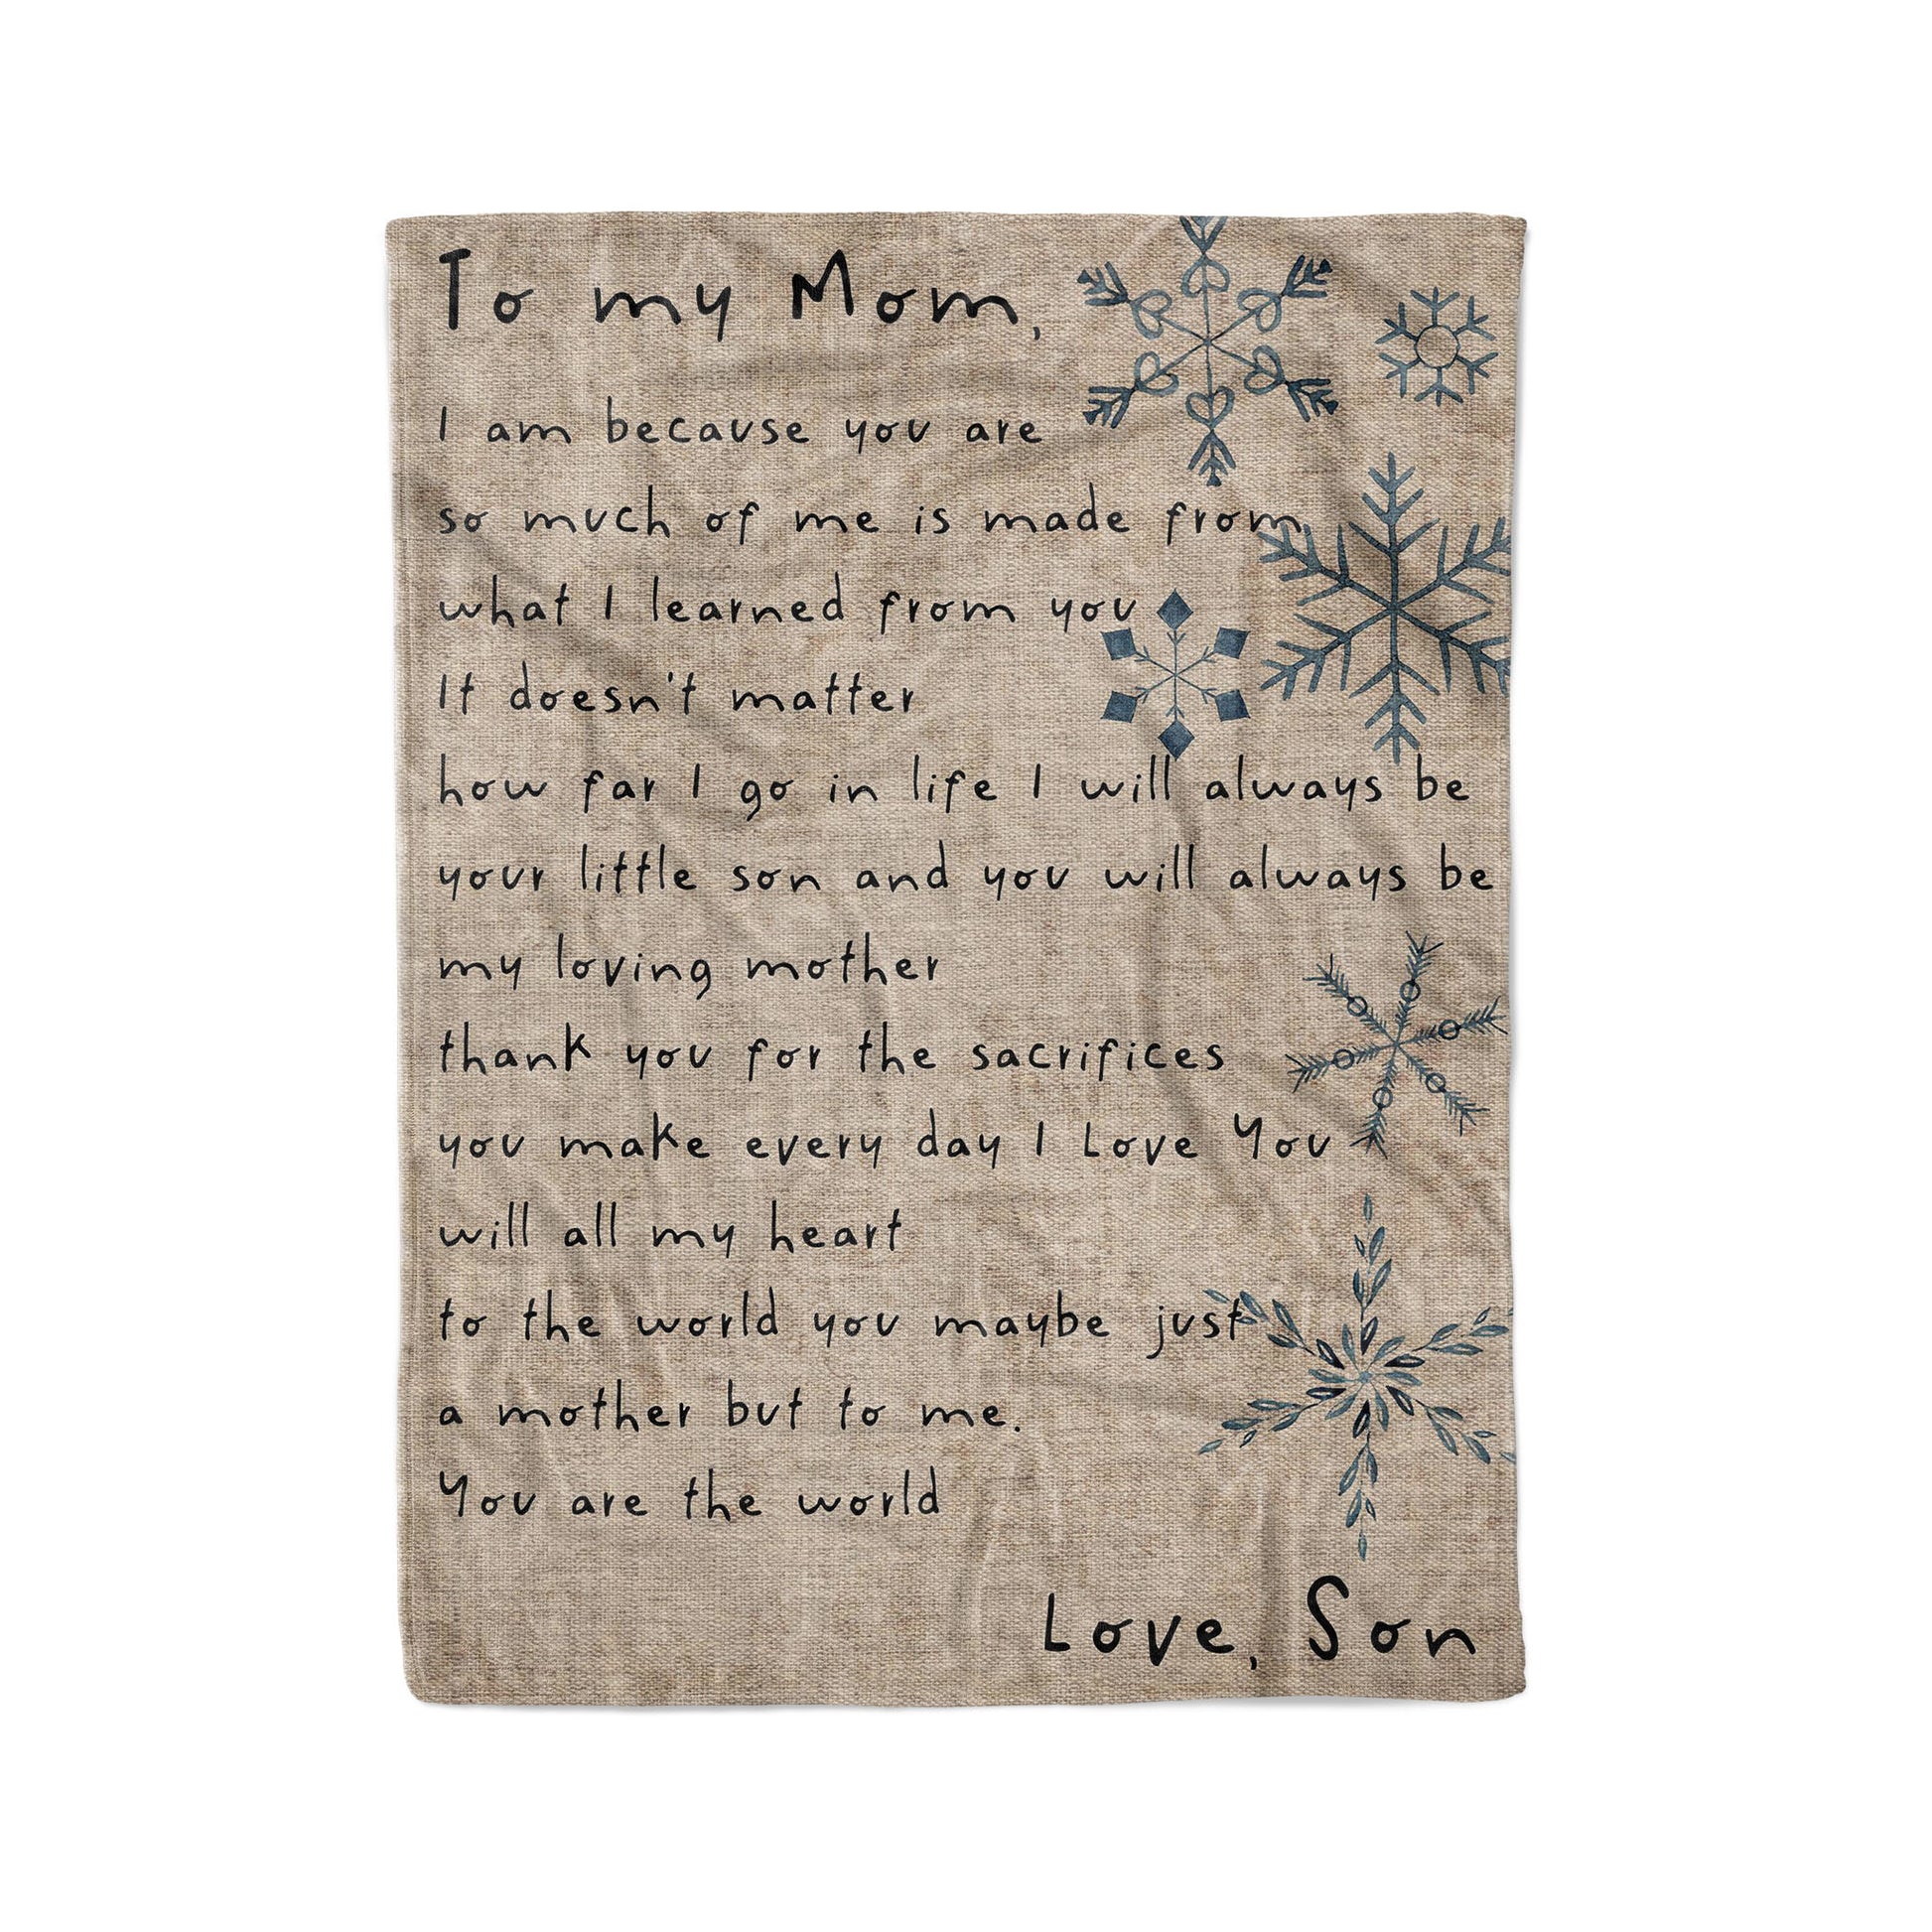 To my Mom,
I am because you are
so much of me is made from
what I learned from you
It doesn't matter
how far I go in life I will always be
your little son and you will always be
my loving mother
thank you for the sacrifices
you make every day I Love You
will all my heart
to the world you maybe just
a mother but to me.
You are the world
Love, Son